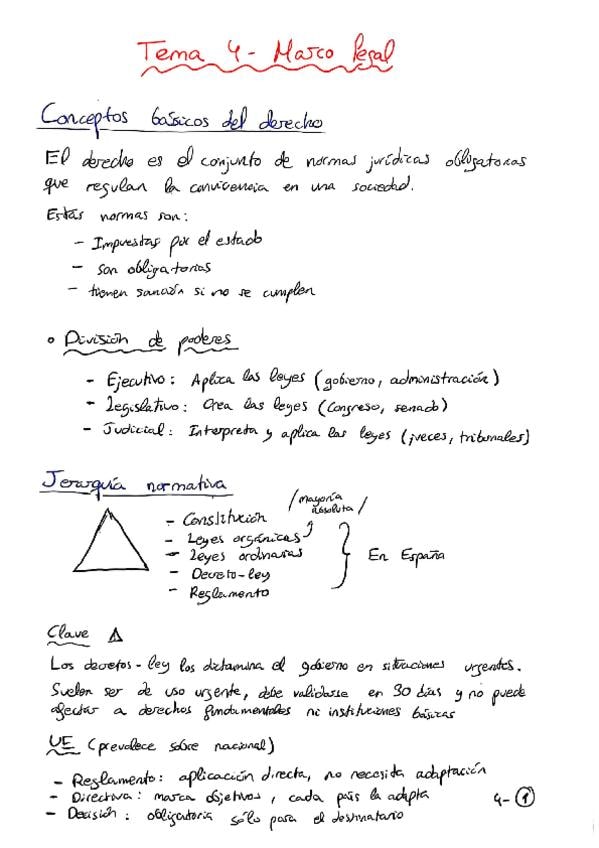 Tema 4 - Marco legal
Conceptos básicos del derecho
El derecho es el conjunto de normas jurídicas obligatorias
que regulan la convivencia en una sociedad.
Estas normas son:
- Impuestas por el estado
- son obligatorias
- tienen sanción si no se cumplen
• División de poderes
- Ejecutivo: Aplica las leyes (gobierno, administración)
- Legislativo: Crea las leyes (Congreso, senado)
- Judicial: Interpreta y aplica las leyes (jueces, tribunales)
Jerarquía normativa
/mayoría absoluta/
- Constitución
- Leyes orgánicas
- Leyes ordinarias
- Decreto-ley
- Reglamento
En España
Clave
Los decretos-ley los dictamina el gobierno en situaciones urgentes.
Suelen ser de uso urgente, debe validarse en 30 días y no puede
afectar a derechos fundamentales ni instituciones básicas
UE (prevalece sobre nacional)
- Reglamento: aplicación directa, no necesita adaptación
- Directiva: marca objetivos, cada país la adapta
- Decisión: obligatoria sólo para el destinatario
4-1